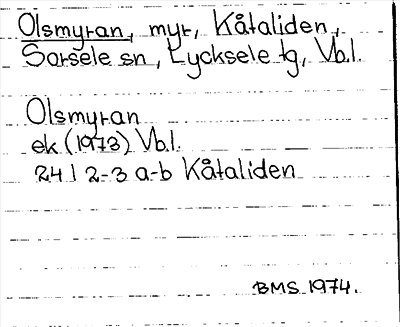 Olsmyran, myr, Kåtaliden,
Sorsele sn, Lycksele tg, Vb.l.
Olsmyran
ek (1973) Vb.l.
24 I 2-3 a-b Kåtaliden
BMS 1974.